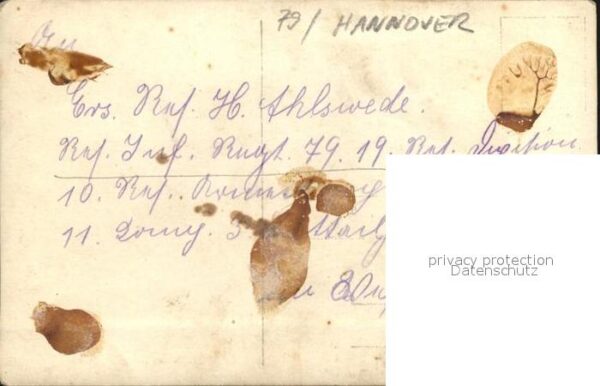 79/ HANNOVER
An
Ers. Res. H. Ahlswede.
Res. Inf. Regt. 79. 19. Res. Division
10. Res.
11. Comp. 3
privacy protection
Datenschutz